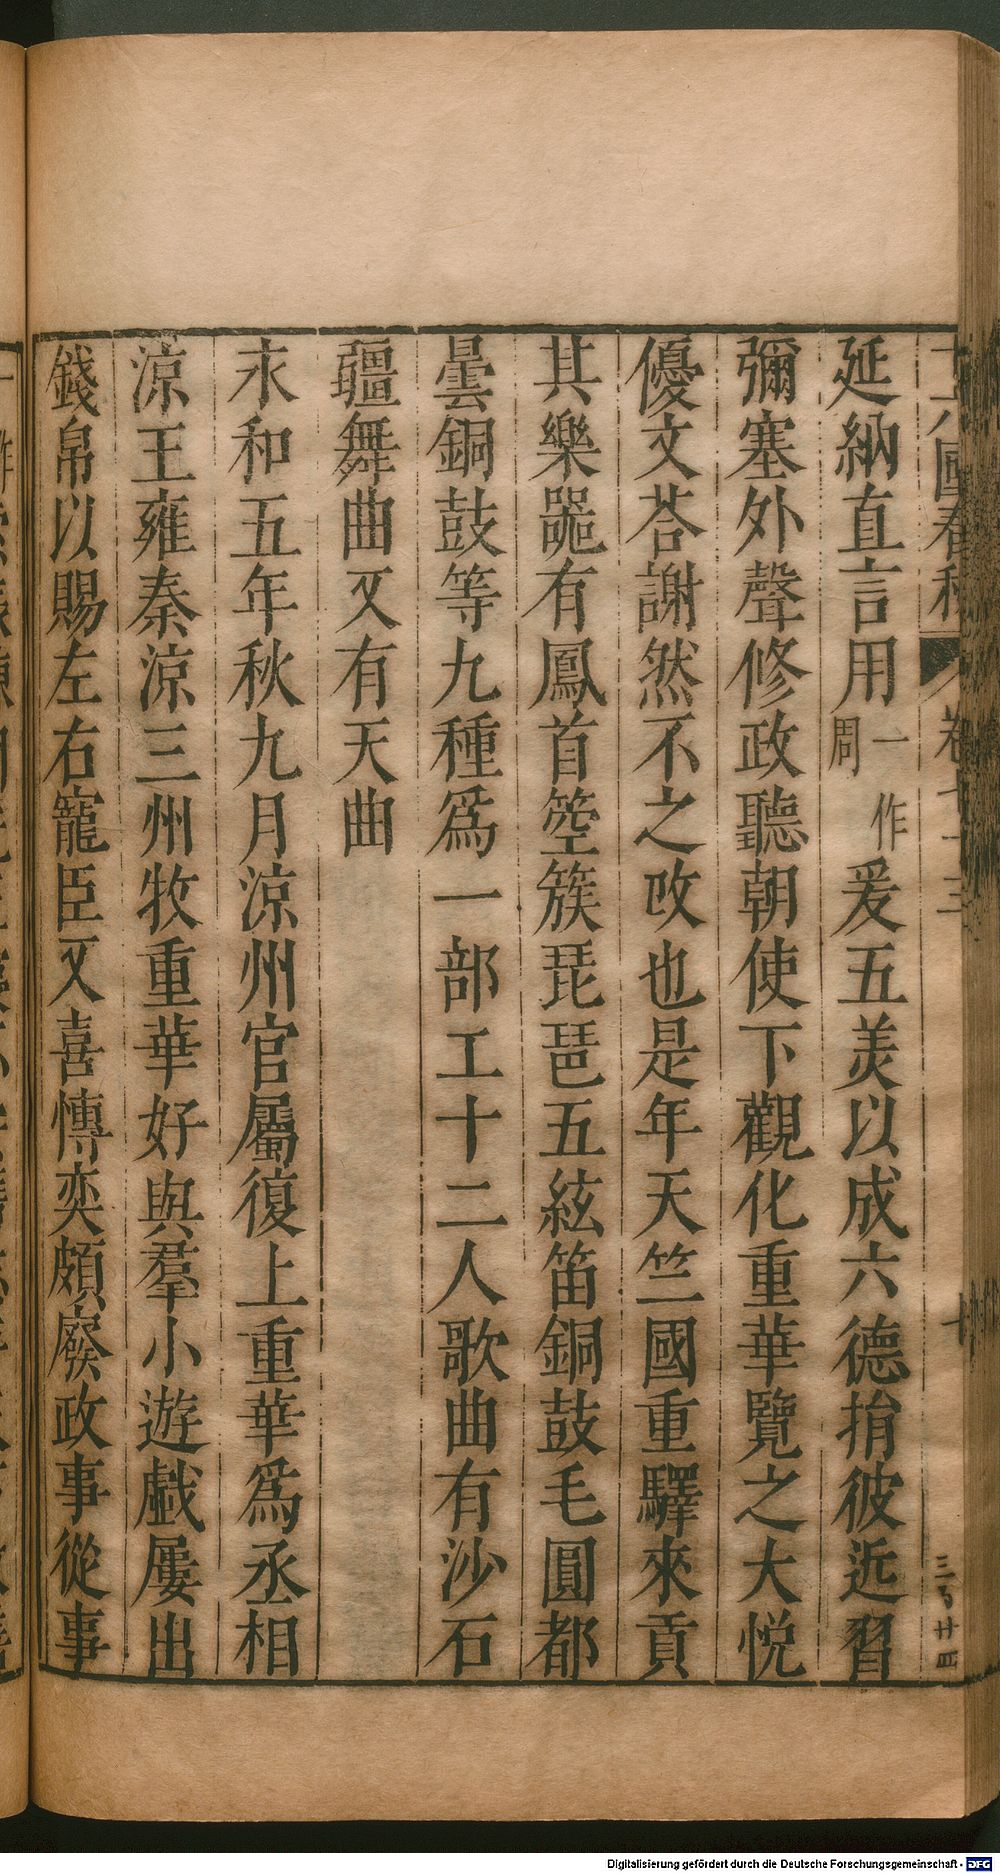 十六國春秋 卷七十三 十 三百廿四
延納直言用一作周爰五美以成六德捐彼近習
彌塞外聲修政聽朝使下觀化重華覽之大悅
優文荅謝然不之改也是年天竺國重驛來貢
其樂噐有鳳首箜篌琵琶五絃笛銅鼓毛圓都
曇銅鼓等九種爲一部工十二人歌曲有沙石
疆舞曲又有天曲
永和五年秋九月涼州官屬復上重華爲丞相
涼王雍秦涼三州牧重華好與羣小遊戲屢出
錢帛以賜左右寵臣又喜博奕頗廢政事從事
Digitalisierung gefördert durch die Deutsche Forschungsgemeinschaft - DFG